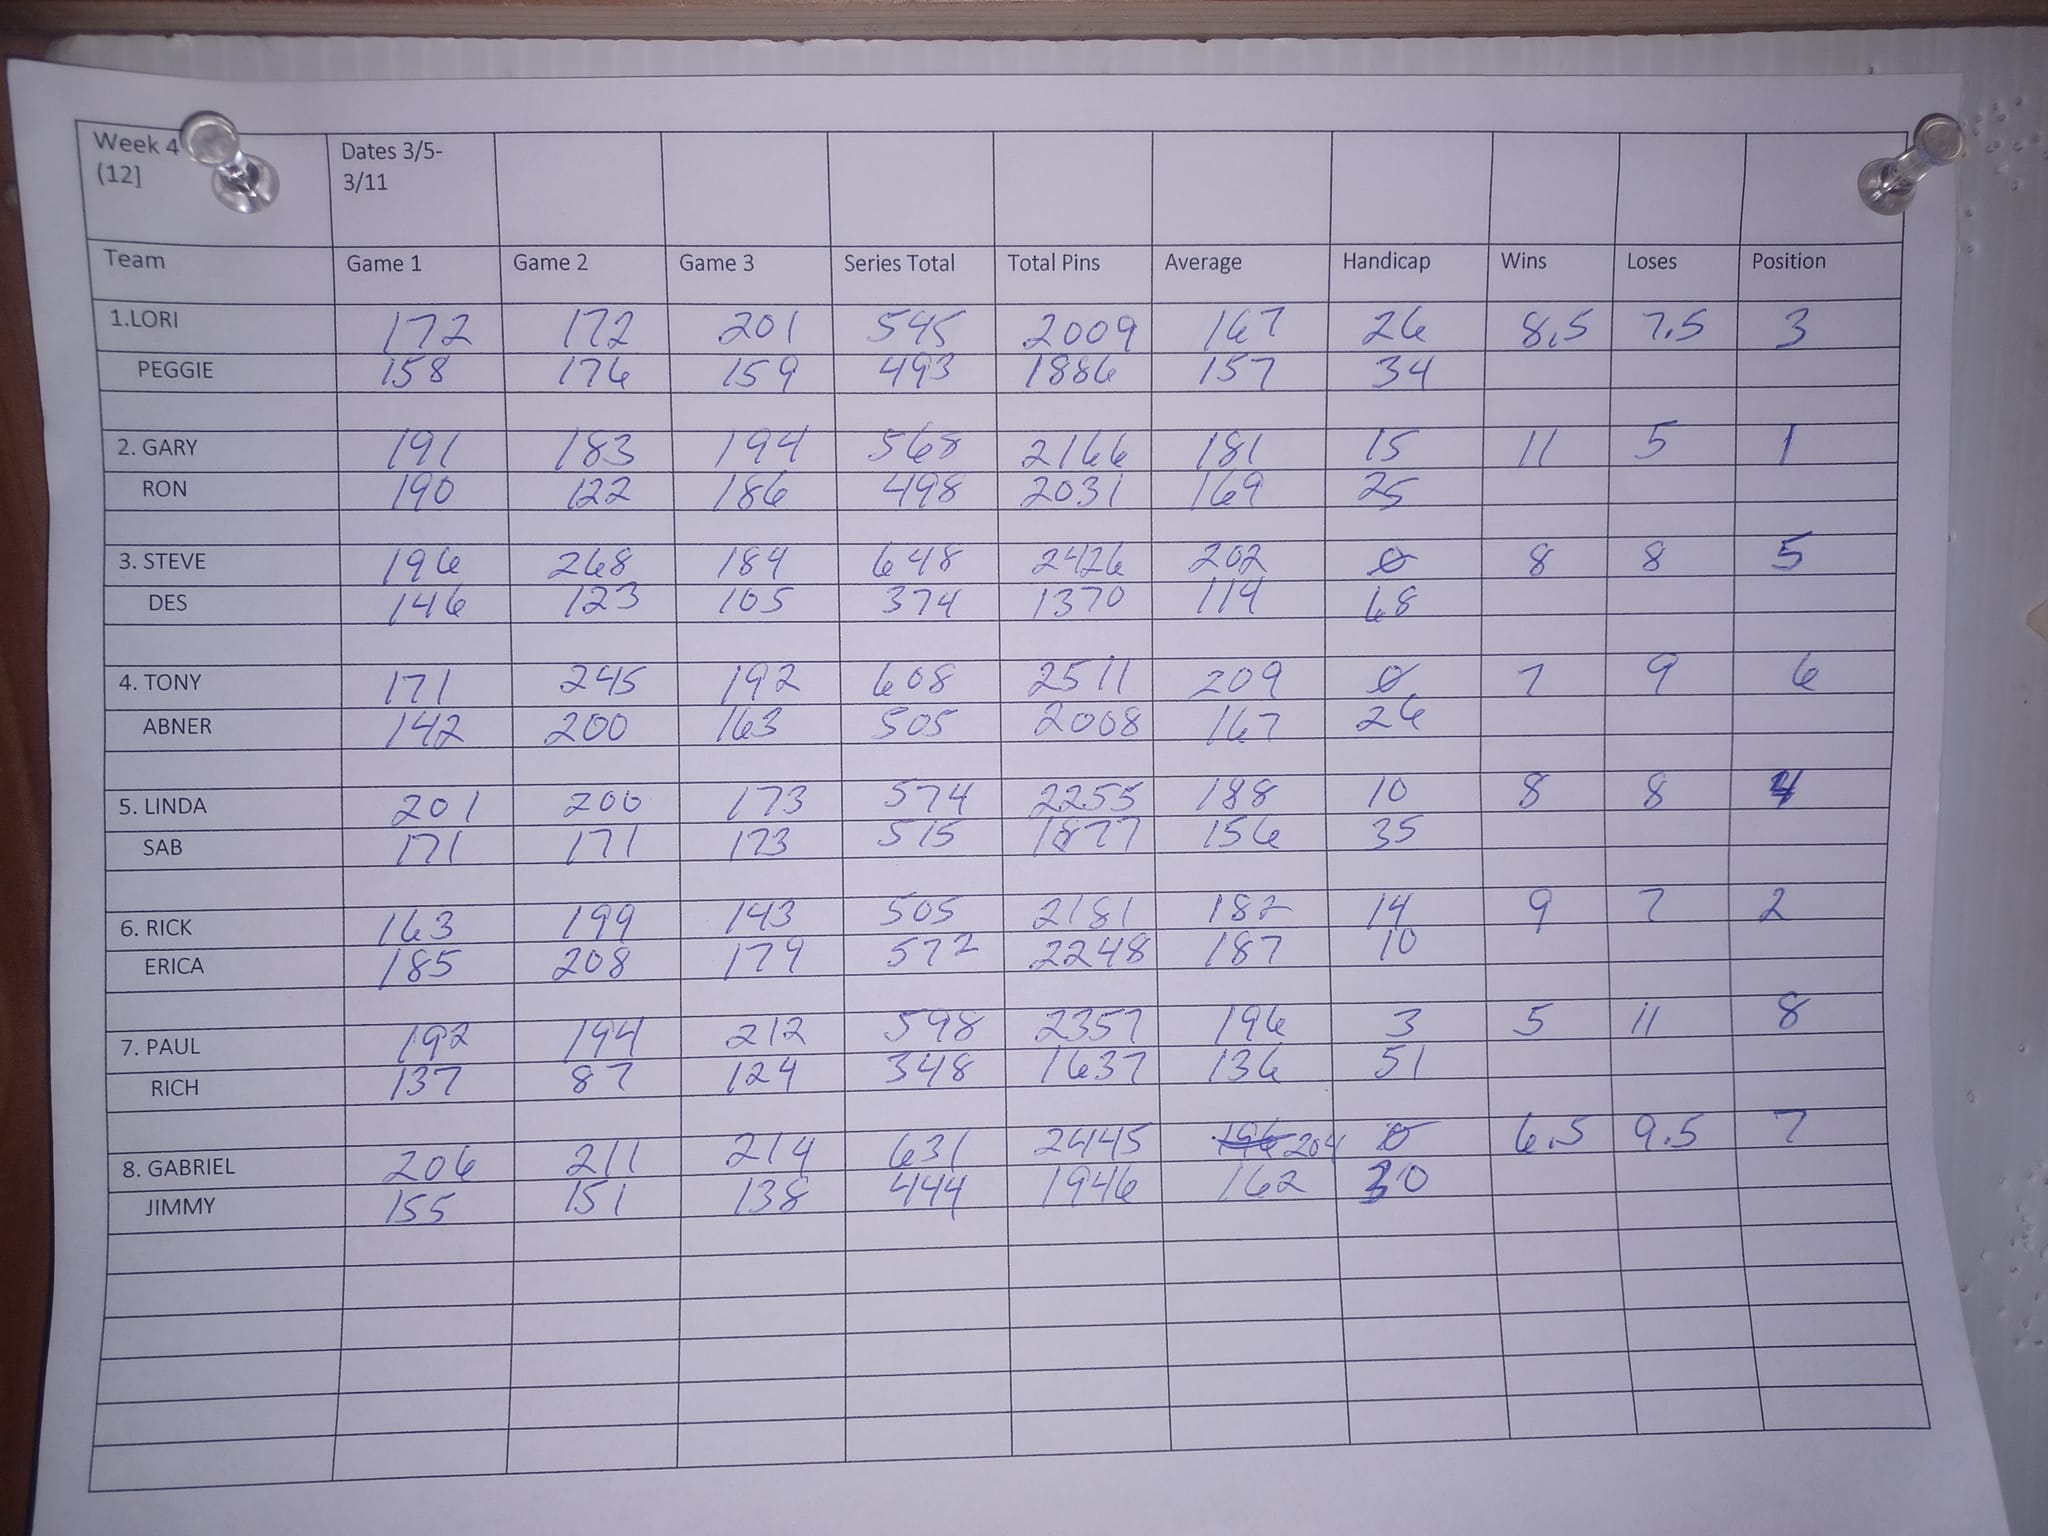 Week 4 Dates 3/5-
(12] 3/11
Team Game 1 Game 2 Game 3 Series Total Total Pins Average Handicap Wins Loses Position
1.LORI 172 172 201 545 2009 167 26 8.5 7.5 3
PEGGIE 158 176 159 493 1886 157 34
2. GARY 191 183 194 568 2166 181 15 11 5 1
RON 190 122 186 498 2031 169 25
3. STEVE 196 268 184 648 2426 202 0 8 8 5
DES 146 123 105 374 1370 114 68
4. TONY 171 245 192 608 2511 209 0 7 9 6
ABNER 142 200 163 505 2008 167 26
5. LINDA 201 200 173 574 2255 188 10 8 8 4
SAB 171 171 173 515 1877 156 35
6. RICK 163 199 143 505 2181 182 14 9 7 2
ERICA 185 208 179 572 2248 187 10
7. PAUL 192 194 212 598 2357 196 3 5 11 8
RICH 137 87 124 348 1637 136 51
8. GABRIEL 206 211 214 631 2445 196 204 0 6.5 9.5 7
JIMMY 155 151 138 444 1946 162 30